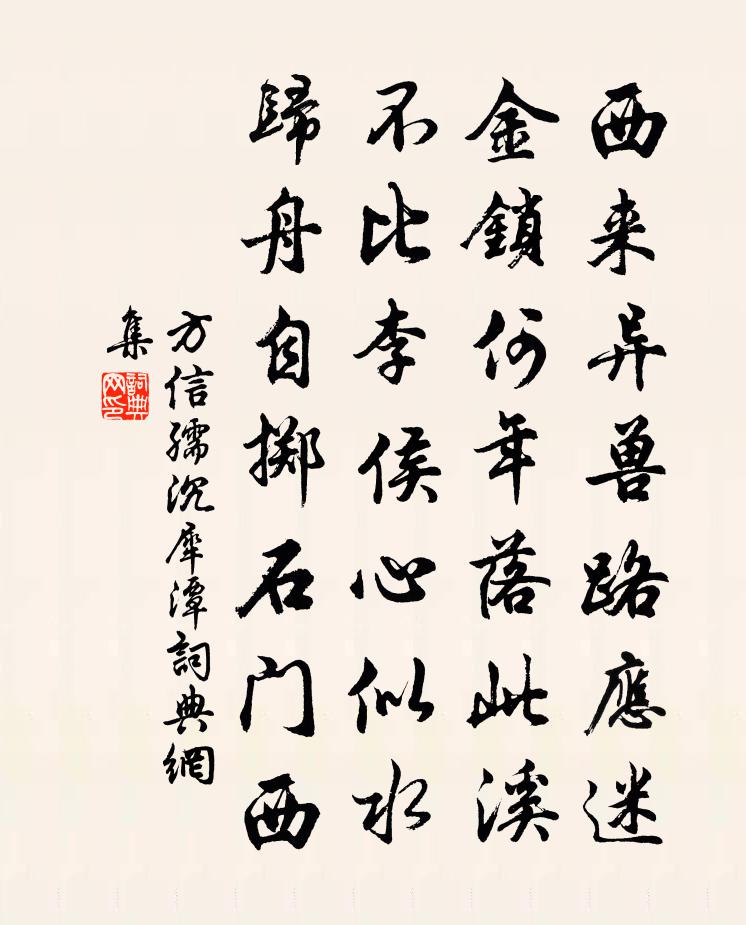 西来异兽路應迷
金鎖何年落此溪
不比李侯心似水
歸舟自掷石门西
方信孺沉犀潭詞典網
集
詞典
网印